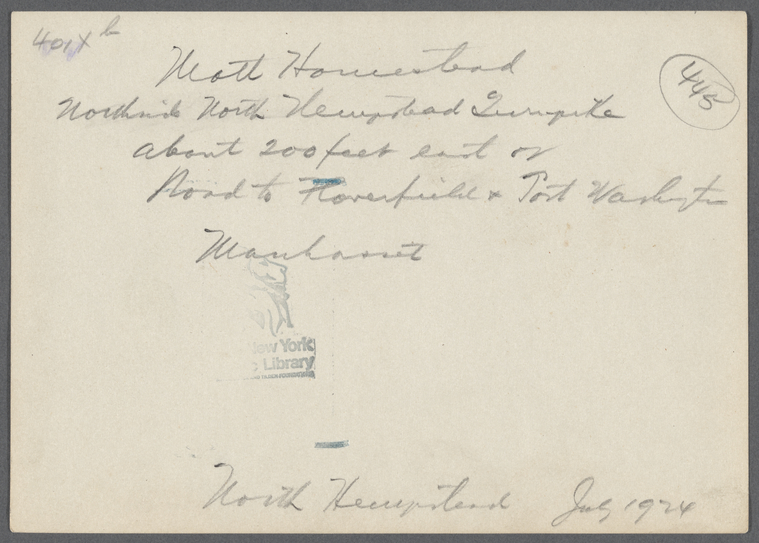 401X b
445
Mott Homestead
Northside North Hempstead Turnpike
about 200 feet east of
Road to Flowerfield & Port Washington
Manhasset
New York
Library
North Hempstead July 1924